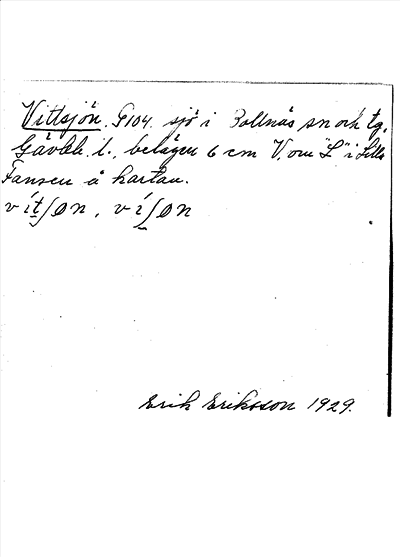 Vittsjön. G104. sjö i Bollnäs sn och tg,
Gävleb. l., belägen 6 cm V. om "L" i Lilla
Fansen å kartan.
vít̰ʃøn, víʃøn
Erik Eriksson 1929.